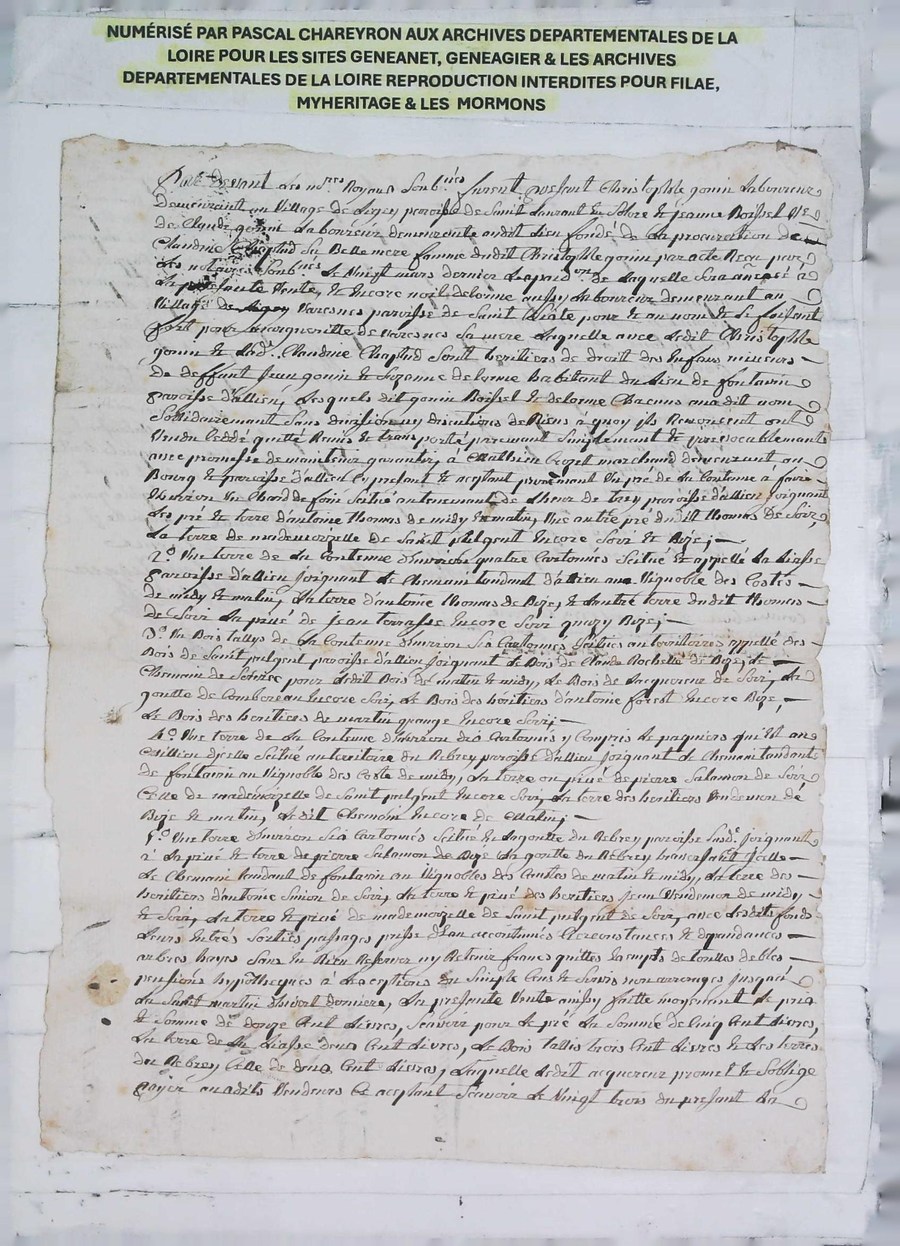 NUMÉRISÉ PAR PASCAL CHAREYRON AUX ARCHIVES DEPARTEMENTALES DE LA
LOIRE POUR LES SITES GENEANET, GENEAGIER & LES ARCHIVES
DEPARTEMENTALES DE LA LOIRE REPRODUCTION INTERDITES POUR FILAE,
MYHERITAGE & LES MORMONS
Pardevant les no.res Royaux Soub.nés furent presant Christophle gonin Laboureur
demeurant au Village de Sigey paroisse de Saint Laurant & jeanne Boissel
de Claude gonin Laboureur demeurante audit Lieu fondé de La procuration de
Claudine Chaphid Sa Belle mere famme dudit Christophle gonin par acte Reçu par
Les notaires Soub.nés Le Vingt mars dernier de Laquelle Sera à
La presante Vente, & Encore noël delorme aussy Laboureur demeurant au
Village de Varesnes paroisse de Saint pour & au nom & Se faisant
fort pour de varesnes Sa mere Laquelle avec Ledit Christophle
gonin & Lad. Claudine Chaphid Sont heritiers de droit des Enfans mineurs
de deffunt Jean gonin & Suzanne delorme habitant du Lieu de fontavin
paroisse d'allieu, Lesquels dit gonin Boissel & delorme Chacuns audit nom
Sollidairement Sans division ny discution de Biens a quoy ils Renoncent ont
Vendu Ceddé quitté Remis & transporté purement Simplement & irrevocablement
avec promesse de maintenir garantir, à Mathieu Crozet marchand demeurant au
Bourg & paroisse d'allieu Cy presant & aceptant premièrement Un pré de La Contenue à faire
Environ Un Chard de foin Scitué au tenement de paroisse d'allieu joignant
Les pré & terre d'antoine thomas de midy & matin, Une autre pré dudit thomas de Soir,
La terre de mademoizelle de Saint pulgent Encore Soir & Bize;
2.º Une terre de La Contenue d'environ quatre Cartonnés Scitué & appellé La Liasse
paroisse d'allieu joignant Le Chemain tandant d'allieu aux Vignoble des Costes
de midy & matin, La terre d'antoine thomas de Bize, & L'autre terre dudit thomas
de Soir La piué de jean terrasse Encore Soir Bize;
3.º Un Bois tallys de La Contenue d'environ Six Cartonnés Scitués au territoire appellé des
Bois de Saint pulgent paroisse d'allieu joignant Le Bois de Claude Rochette de Bize, &
Chemain de Service pour Ledit Bois de matin & midy, Le Bois de Lacquereur de Soir, La
goutte de Encore Soir, Le Bois des heritiers d'antoine forest Encore Bize,
Le Bois des heritiers de martin grange Encore Soir;
4.º Une terre de La Contenue d'environ dix Cartonnés y Compris Le paquiers qu'il au
Millieu d'icelle Scitué au teritoire du Rebrey paroisse d'allieu joignant Le Chemain tandant
de fontavin au Vignoble des Coste de midy, La terre ou piué de pierre Salamon de Soir
Celle de mademoizelle de Saint pulgent Encore Soir, La terre des heritiers Vendemon de
Bize & matin, Ledit Chemain Encore de Matin;
5.º Une terre d'environ Six Cartonnés Scitué à La goutte du Rebrey paroisse Susd.e joignant
à La piué & terre de pierre Salamon de Bize La goutte du Rebrey
Le Chemain tandant de fontavin au Vignobles des Coustes de matin & midy, La terre des
heritiers d'antoine Simon de Soir, La terre & piué des heritiers jean Vendemon de midy
& Soir, La terre & piué de mademoizelle de Saint pulgent de Soir, avec Lesdits fonds
Leurs Entrés Sorties passages prisse d'Eau accoutumés Circonstances & depandances
arbres hayes Sans En Rien Reserver ny Retenir francs quittes Exempts de touttes debtes
pensions hypotheques à Laception du Simple Cens & Servis non arreragés jusqu'à
La Saint martin d'hivert derniere, La presente Vente ainssy faitte moyenant Le prix
& Somme de douze Cent Livres, Scavoir pour Le pré La Somme de Cinq Cent Livres,
La terre de La Liasse deux Cent Livres, Le Bois tallis trois Cent Livres & Les terres
du Rebrey Celle de deux Cent Livres, Laquelle Ledit acquereur promet & S'oblige
payer auxdits Vendeurs Ce aceptant Scavoir Le Vingt trois du presant La